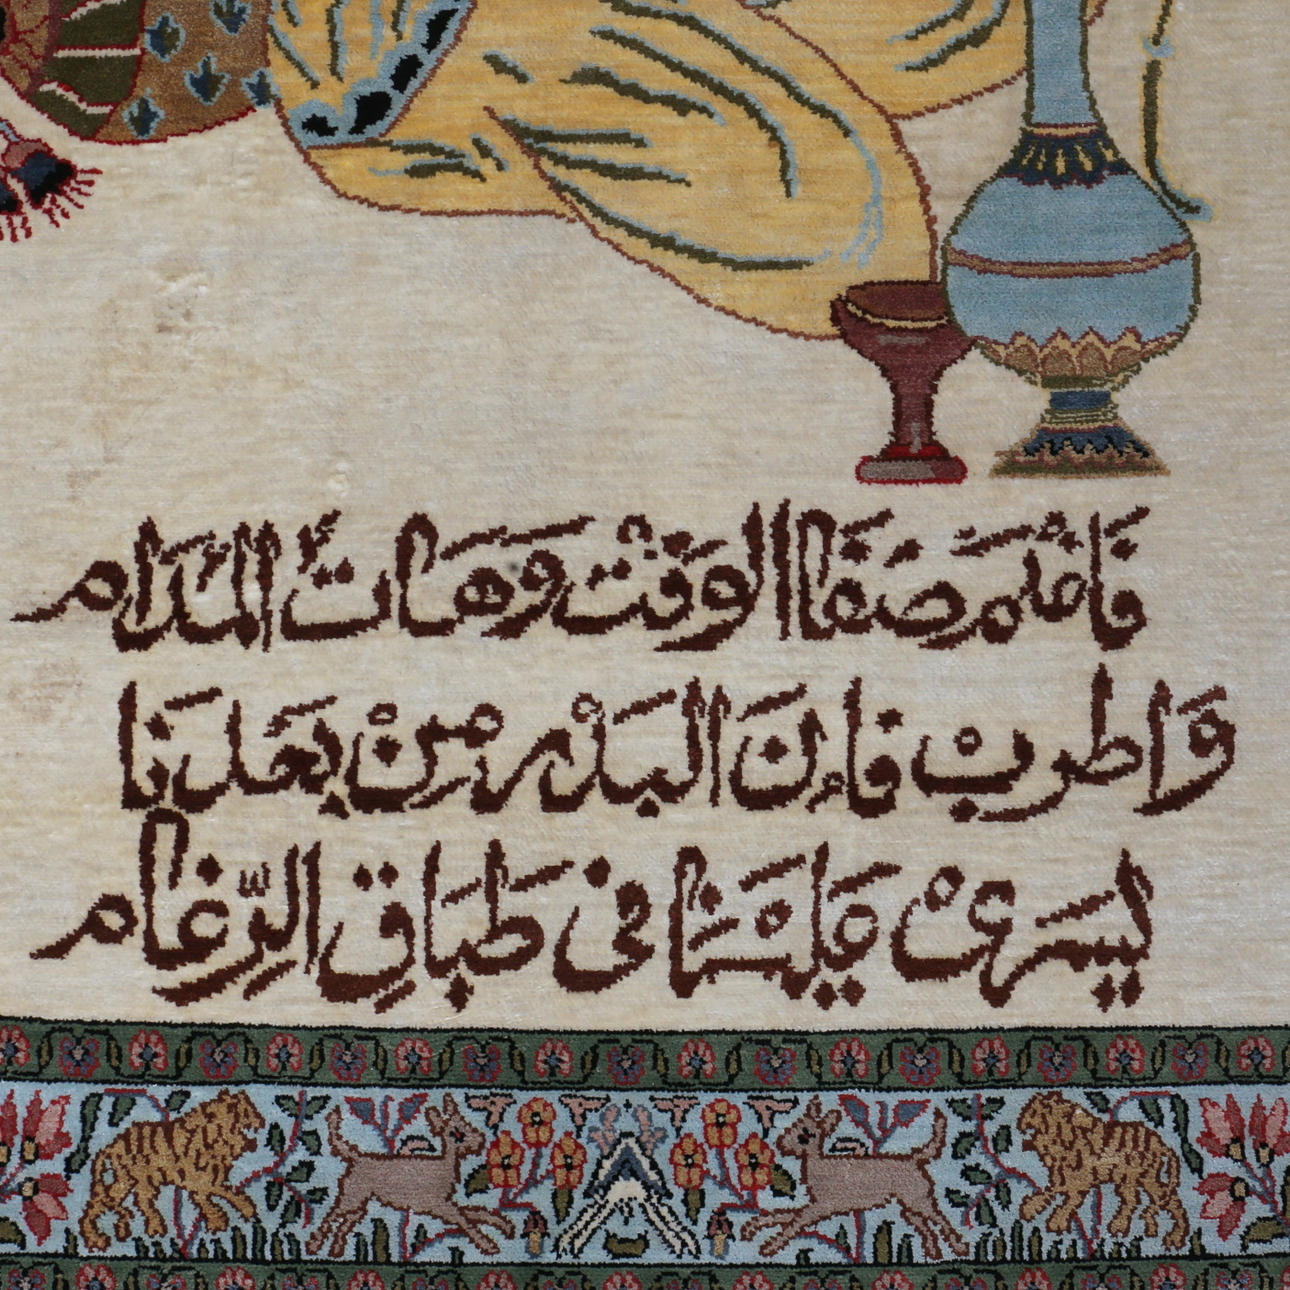 فَاغْنَمْ صَفَا الوَقْتْ وَهَاتْ المدَام
وَاطرب فَاءِنَ البَدْر مِنْ بَعدَنَا
يسَرىْ عَلَينَا فى طبَاقِ الرِّغَام